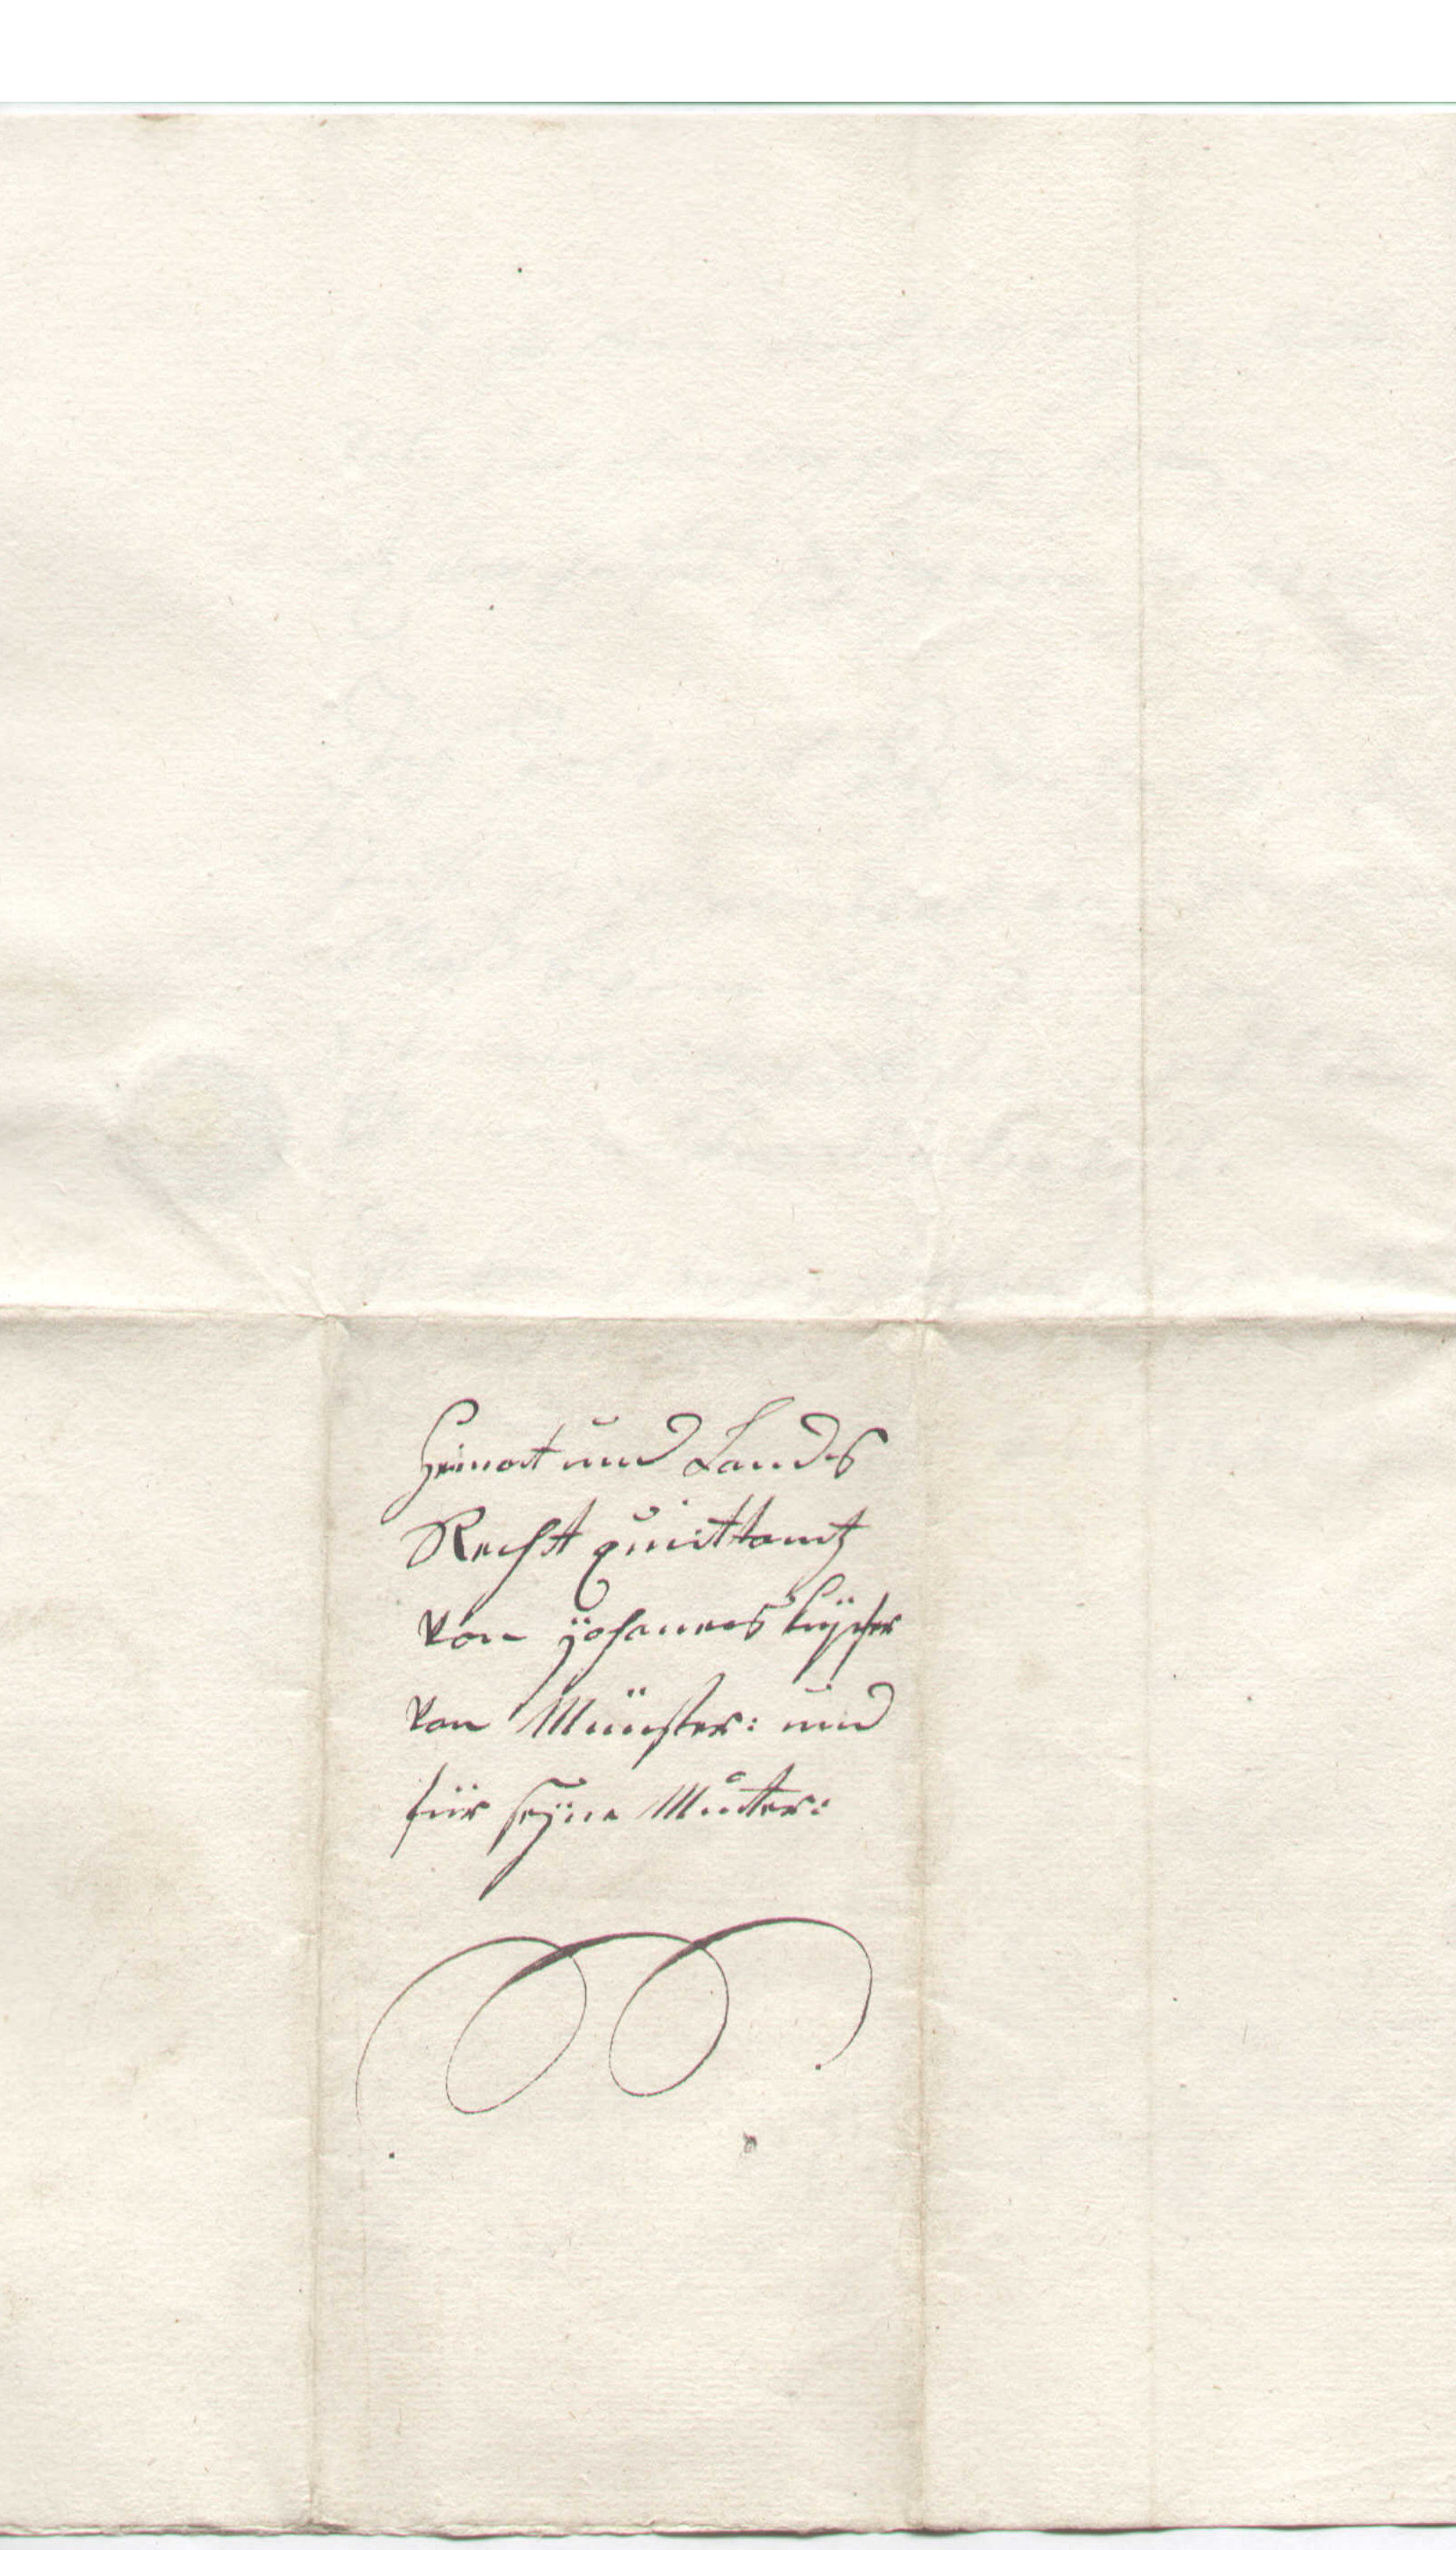 Heimat und Lands
Recht quittantz
von Johannes
von Münster: und
für seÿne Mutter: